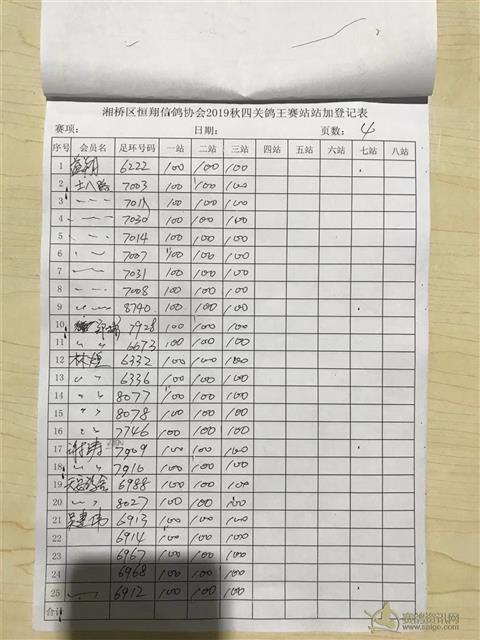 湘桥区恒翔信鸽协会2019秋四关鸽王赛站站加登记表
赛项: 日期: 页数: 4
序号 会员名 足环号码 一站 二站 三站 四站 五站 六站 七站 八站
1 6222 100 100 100
2 十八路 7003 100 100 100
3 〃 701 100 100 100
4 〃 7030 100 100 100
5 〃 7014 100 100 100
6 〃 7007 100 100 100
7 〃 7031 100 100 100
8 〃 7008 100 100 100
9 〃 8740 100 100 100
10 7928 100 100 100
11 〃 6673 100 100 100
12 林 6332 100 100 100
13 〃 6336 100 100 100
14 〃 8077 100 100 100
15 〃 8078 100 100 100
16 〃 7746 100 100 100
17 谢涛 7909 100 100 100
18 〃 7916 100 100 100
19 6988 100 100 100
20 〃 8027 100 100 100
21 吴 6913 100 100 100
22 6914 100 100 100
23 6967 100 100 100
24 6968 100 100 100
25 〃 6912 100 100 100
合计
赛鸽资讯网
www.saige.com